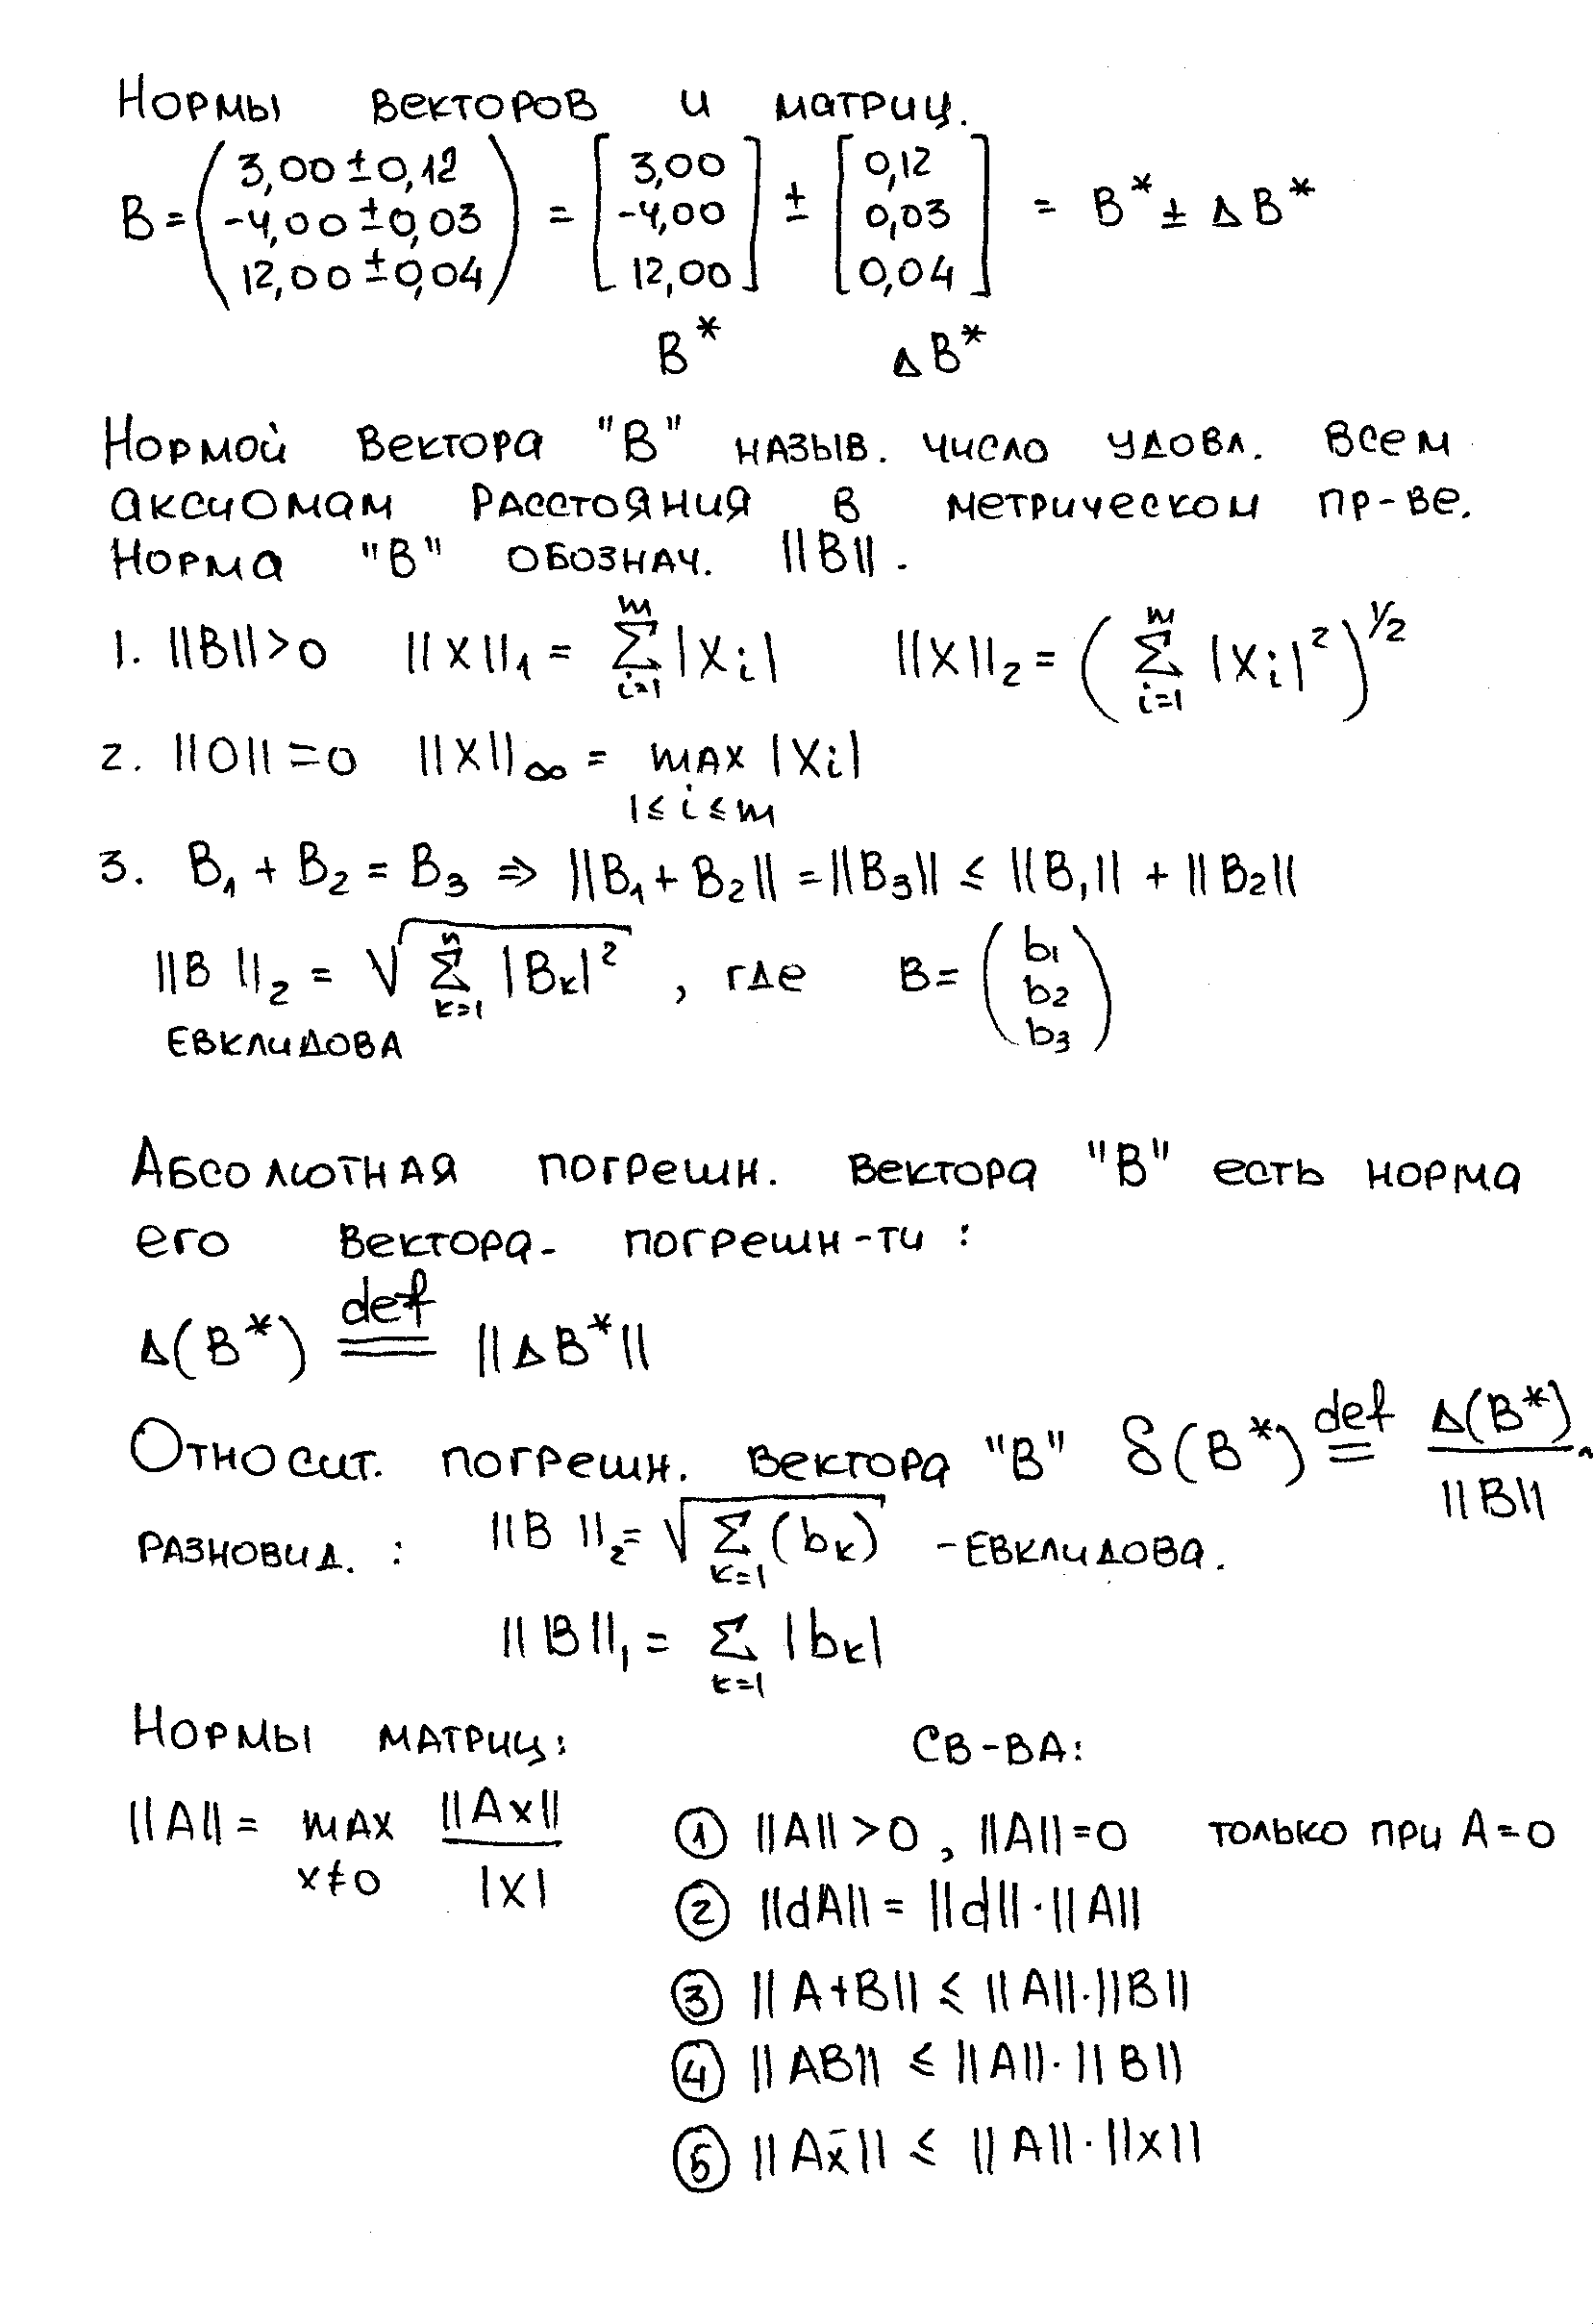 Нормы векторов и матриц.
B = (3,00 ± 0,12; -4,00 ± 0,03; 12,00 ± 0,04) = [3,00; -4,00; 12,00] ± [0,12; 0,03; 0,04] = B* ± ΔB*
B* ΔB*
Нормой вектора "B" назыв. число удовл. всем
аксиомам расстояния в метрическом пр-ве.
Норма "B" обознач. ||B||.
1. ||B|| > 0 ||x||₁ = Σ_{i=1}^{m} |xᵢ| ||x||₂ = (Σ_{i=1}^{m} |xᵢ|²)^{1/2}
2. ||0|| = 0 ||x||_∞ = max_{1≤i≤m} |xᵢ|
3. B₁ + B₂ = B₃ ⇒ ||B₁ + B₂|| = ||B₃|| ≤ ||B₁|| + ||B₂||
||B||₂ = √(Σ_{k=1}^{n} |Bₖ|²), где B = (b₁; b₂; b₃)
Евклидова
Абсолютная погрешн. вектора "B" есть норма
его вектора- погрешн-ти :
Δ(B*) def== ||ΔB*||
Относит. погрешн. вектора "B" δ(B*) def= Δ(B*)/||B||.
Разновид. : ||B||₂ = √(Σ_{k=1} (bₖ)) - Евклидова.
||B||₁ = Σ_{k=1} |bₖ|
Нормы матриц: Св-ва:
||A|| = max_{x≠0} ||Ax||/|x|
① ||A|| > 0, ||A|| = 0 только при A = 0
② ||dA|| = ||d||·||A||
③ ||A+B|| ≤ ||A||·||B||
④ ||AB|| ≤ ||A||·||B||
⑤ ||Ax̄|| ≤ ||A||·||x||